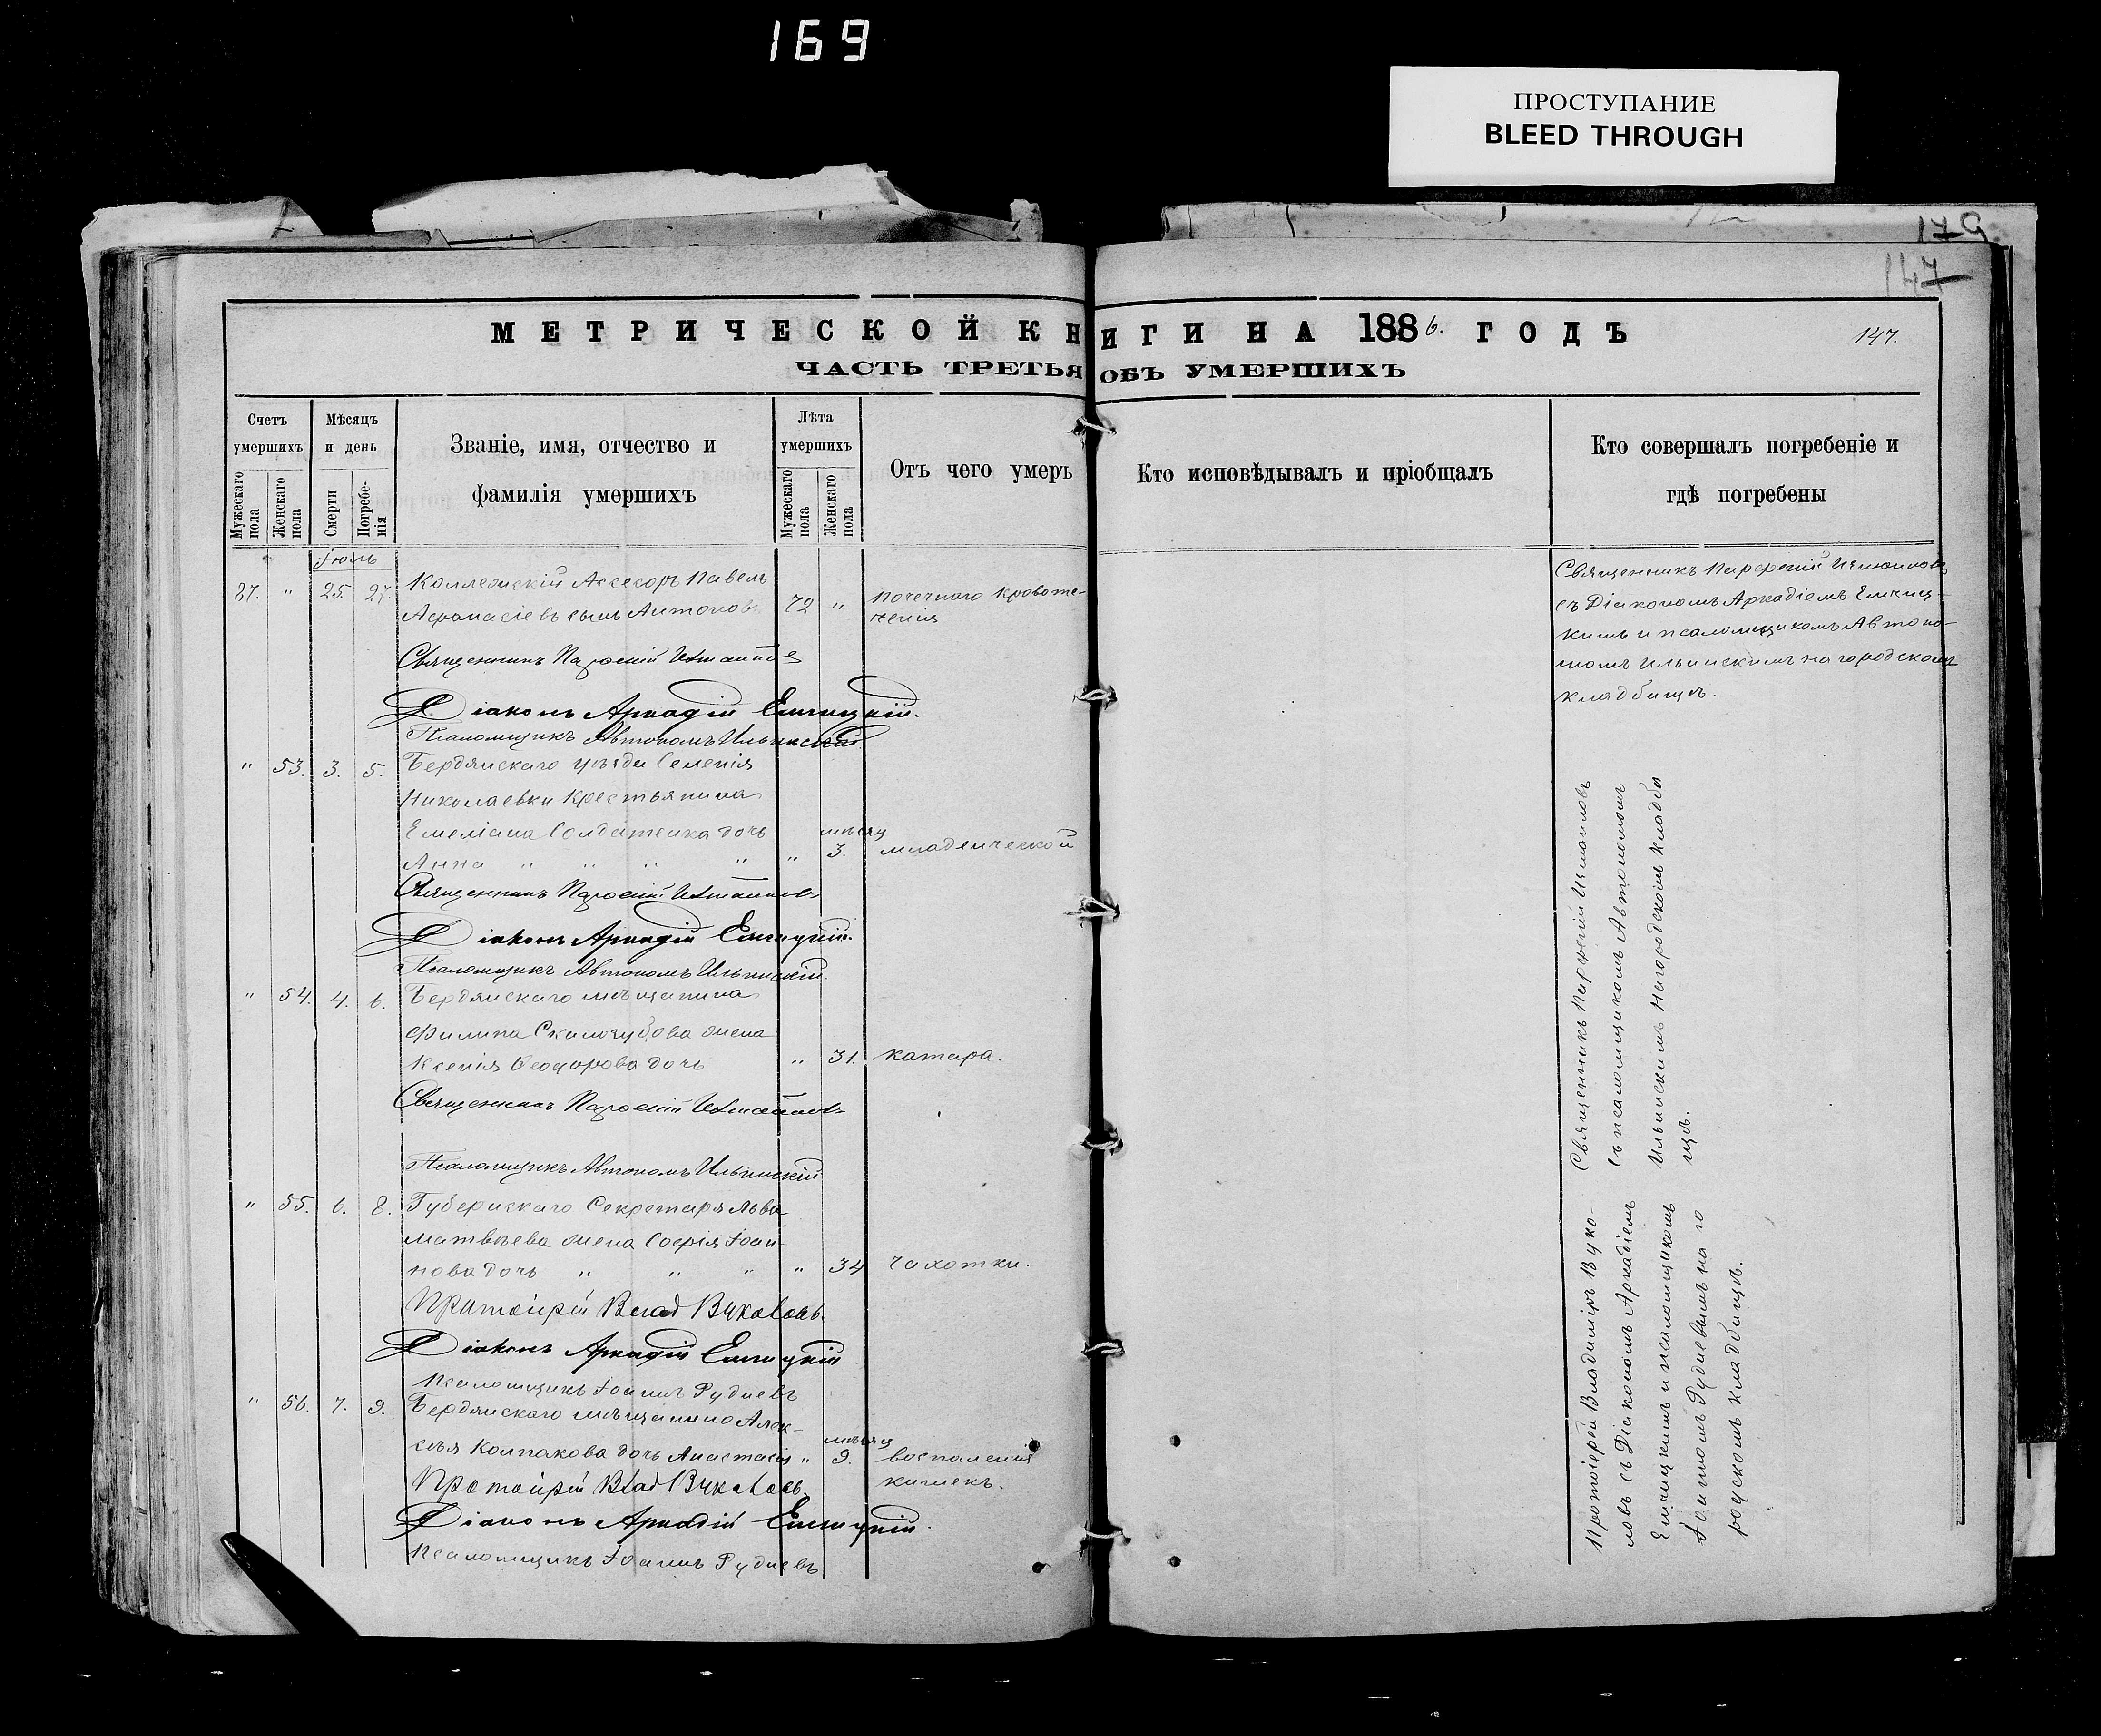 169
ПРОСТУПАНИЕ
BLEED THROUGH
179
147
МЕТРИЧЕСКОЙ КНИГИ НА 1886. ГОДЪ
147.
ЧАСТЬ ТРЕТЬЯ ОБЪ УМЕРШИХЪ
Счетъ умершихъ
Мѣсяцъ и день
Званіе, имя, отчество и фамилія умершихъ
Лѣта умершихъ
Отъ чего умеръ
Кто исповѣдывалъ и пріобщалъ
Кто совершалъ погребеніе и гдѣ погребены
Мужескаго пола
Женскаго пола
Смерти
Погребенія
Мужескаго пола
Женскаго пола
Іюль
37. " 25. 27. Коллежскій Ассесоръ Павелъ
Афонасіевъ сынъ Антоновъ 72 " почечнаго кровоте-
ченія
Священникъ Парфеній Измаиловъ
Діаконъ Аркадій Емницкій.
Псаломщикъ Автономъ Ильинскій
Священникъ Парфеній Измаиловъ
съ Діакономъ Аркадіемъ Емниц-
кимъ и псаломщикомъ Автоно-
момъ Ильинскимъ на городскомъ
кладбищѣ.
" 53. 3. 5. Бердянскаго уѣзда Селенія
Николаевки крестьянина
Емеліана Солдатенка дочь
мѣсяц
Анна " " " " " 3. младенческой
Священникъ Парфеній Измаиловъ
Діаконъ Аркадій Емницкій.
Псаломщикъ Автономъ Ильинскій.
" 54. 4. 6. Бердянскаго мѣщанина
Филипа Скилозубова жена
Ксенія Ѳеодорова дочь " 31. катара.
Священникъ Парфеній Измаиловъ
Псаломщикъ Автономъ Ильинскій
Священникъ Парфеній Измаиловъ
съ псаломщикомъ Автономомъ
Ильинскимъ на городскомъ кладби
щѣ.
" 55. 6. 8. Губернскаго Секретаря Льва
Матвѣева жена Софія Іоан-
нова дочь " " " " 34 чахотки.
Протоіерей Влад Вукаловъ.
Діаконъ Аркадій Емницкій
Псаломщикъ Іоаннъ Рудневъ
" 56. 7. 9. Бердянскаго мѣщанина Алек-
мѣсяц
сѣя Колпакова дочь Анастасія " 9. воспаленія
кишекъ.
Протоіерей Влад Вукаловъ.
Діаконъ Аркадій Емницкій.
Псаломщикъ Іоаннъ Рудневъ
Протоіерей Владиміръ Вука-
ловъ съ Діакономъ Аркадіемъ
Емницкимъ и псаломщикомъ
Іоанномъ Рудневымъ на го
родскомъ кладбищѣ.